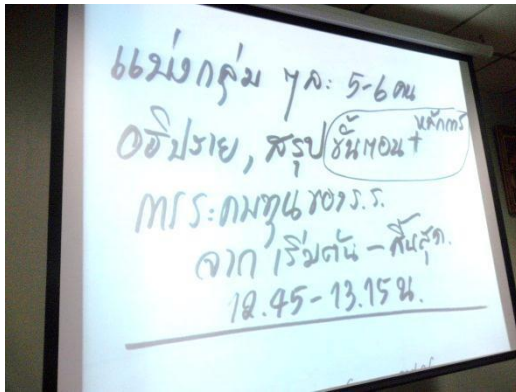 แบ่งกลุ่ม ๆละ 5-6 คน
อธิปราย, สรุป ขั้นตอน + หลักการ
การระดมทุนของ ร.ร.
จาก เริ่มต้น - สิ้นสุด.
12.45 - 13.15 น.